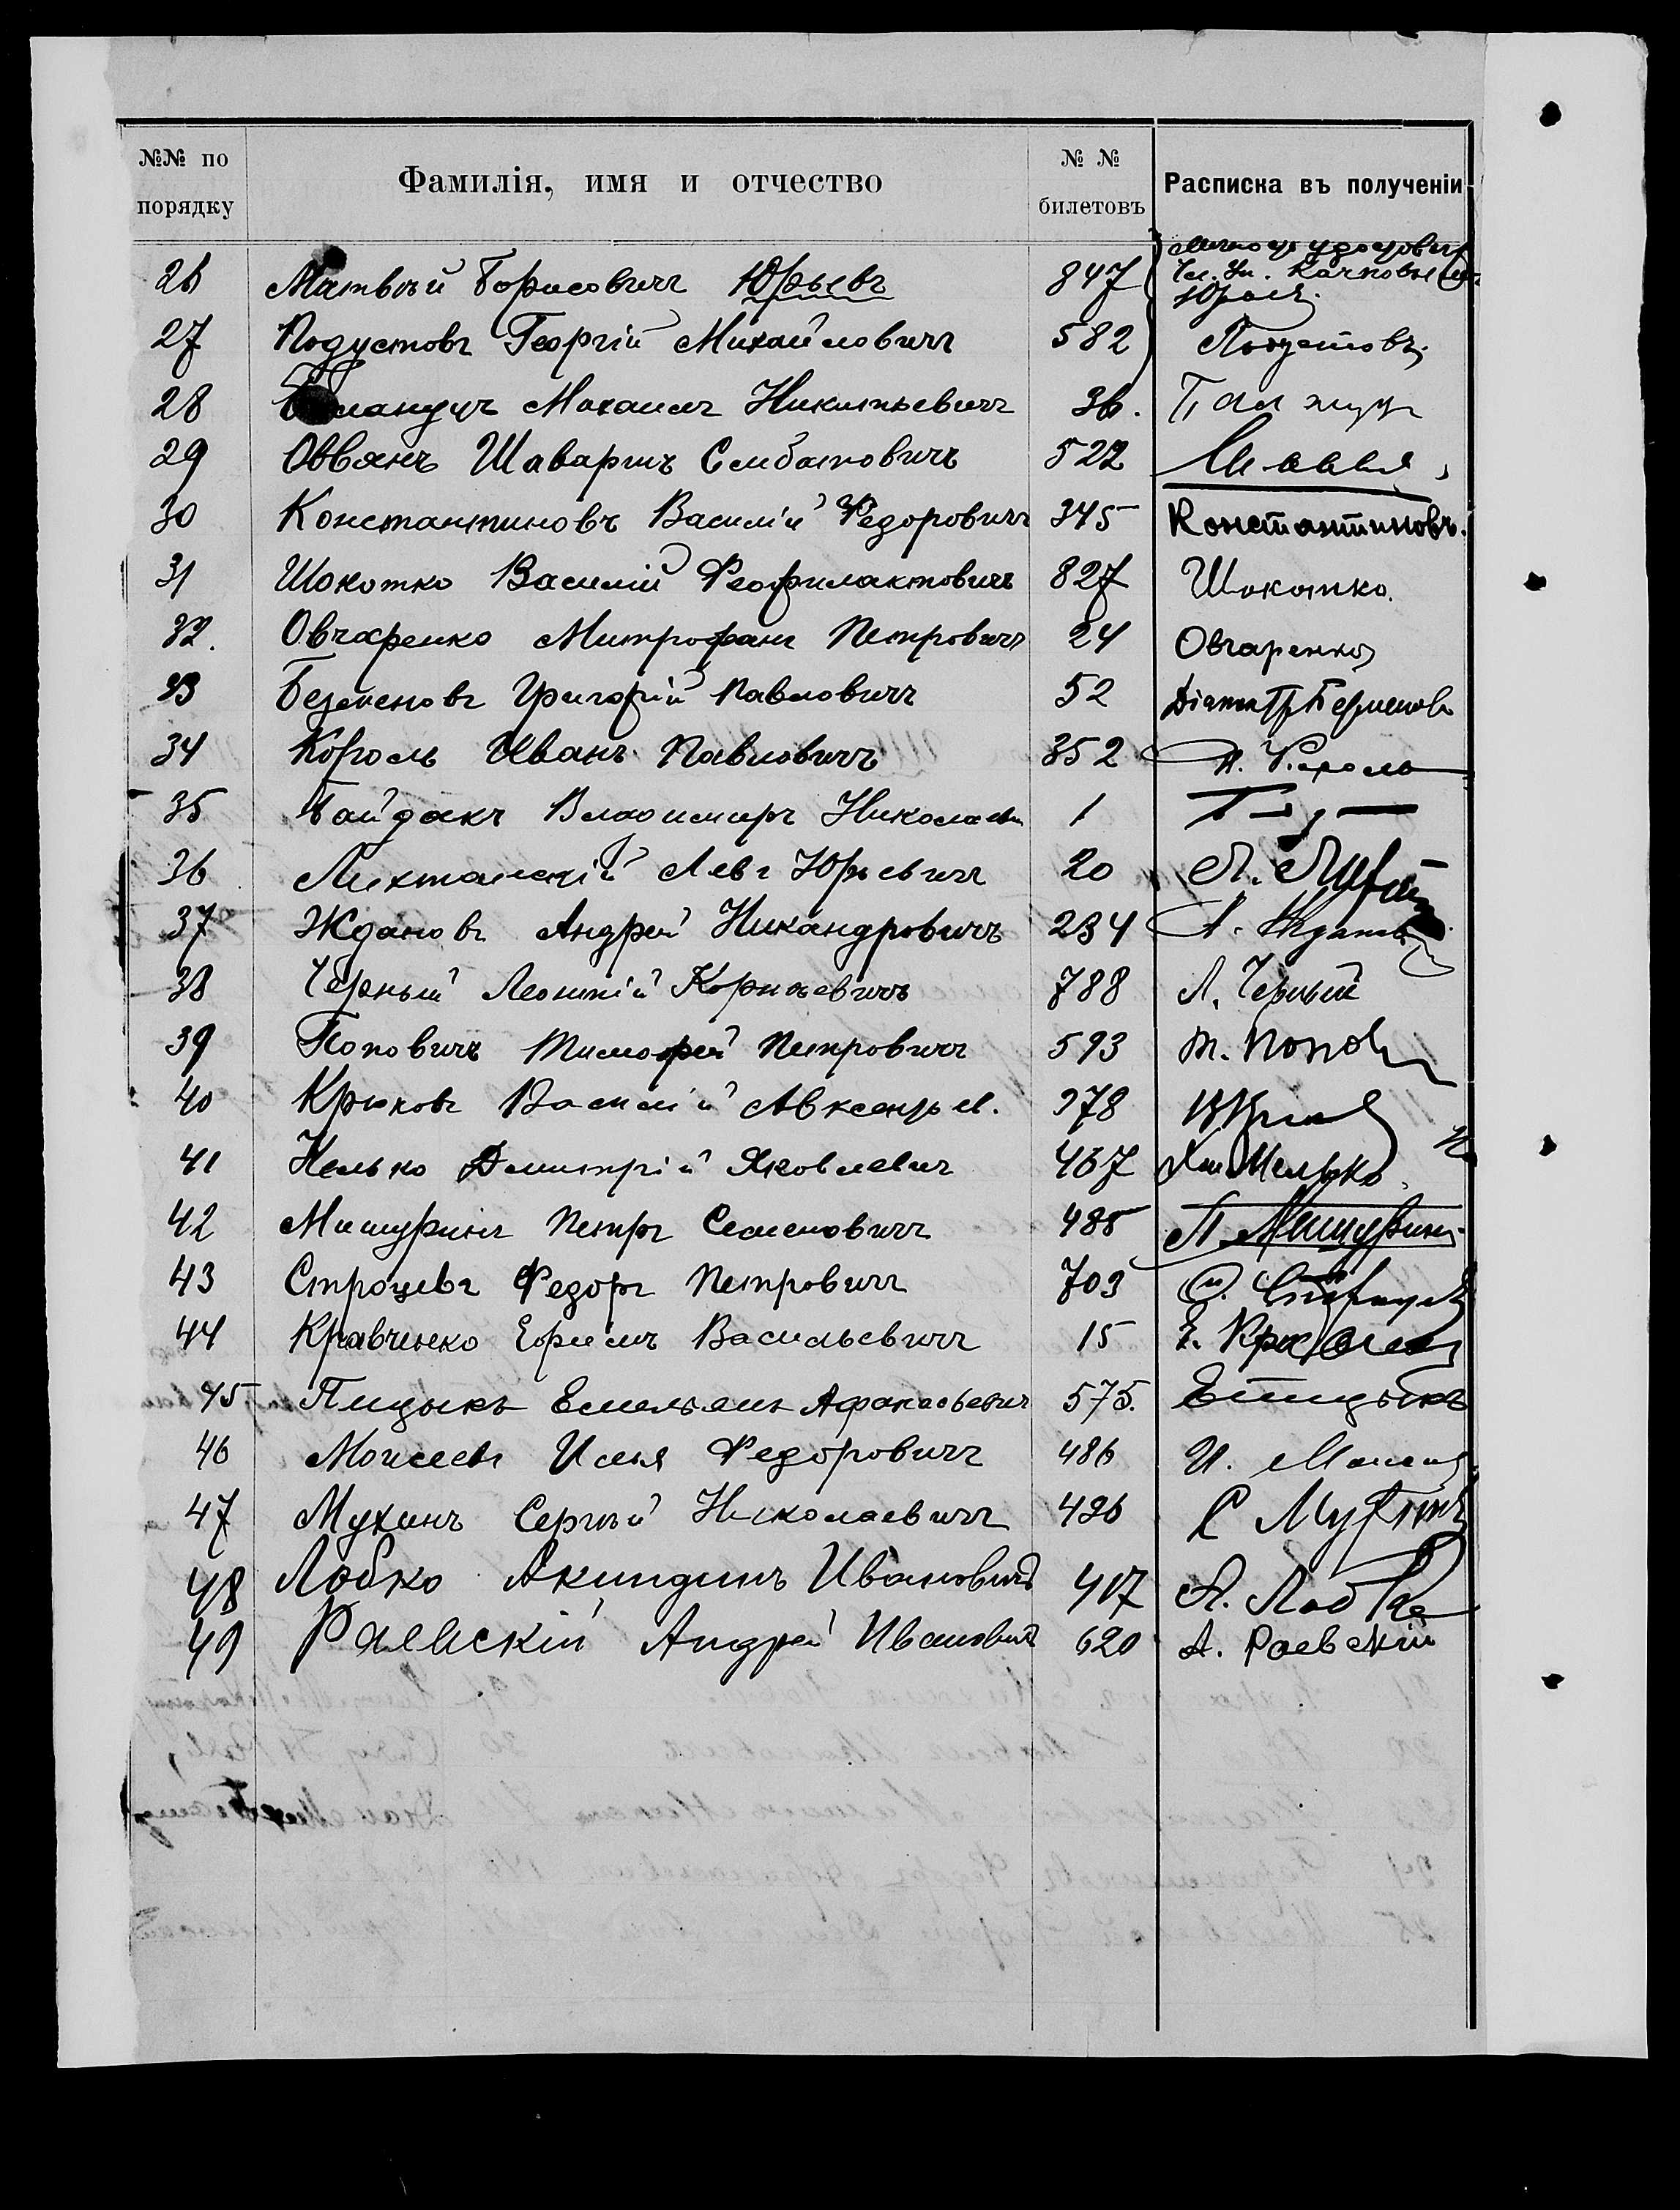 №№ по порядку Фамилія, имя и отчество № № билетовъ Расписка въ полученіи
26 Матвѣй Борисовичъ Юрьевъ 847 Юрьевъ
27 Подустовъ Георгій Михайловичъ 582 Подустовъ
28 Михаилъ Никитьевичъ 36.
29 Оввянъ Шаваршъ Смбатовичъ 522
30 Константиновъ Василій Федоровичъ 345 Константиновъ.
31 Шокотко Василій Феофилактовичъ 827 Шокотко.
32. Овчаренко Митрофанъ Петровичъ 24 Овчаренко
33 Безменовъ Григорій Павловичъ 52
34 Король Иванъ Павловичъ 352 И. Король
35 Байдакъ Владимиръ Николаев 1
36 Левъ Юрьевичъ 20 Л.
37 Ждановъ Андрей Никандровичъ 234 А. Ждановъ
38 Черный Леонтій Корнѣевичъ 788 Л. Черный
39 Поповичъ Тимофей Петровичъ 593 Т. Попов
40 Крюковъ Василій 378
41 Дмитрій Яковлевич 467
42 Мишуринъ Петръ Семеновичъ 485 П. Мишуринъ
43 Федоръ Петровичъ 703
44 Кравченко Ефимъ Васильевичъ 15 Е.
45 Птицыкъ Емельянъ Афанасьевич 575. Е Птицыкъ
46 Моисеевъ Илья Федоровичъ 486 И.
47 Мухинъ Сергѣй Николаевичъ 496 С Мухинъ
48 Лобко Акиндинъ Ивановичъ 417 А. Лобко
49 Раевскій Андрей Ивановичъ 620 А. Раевскій